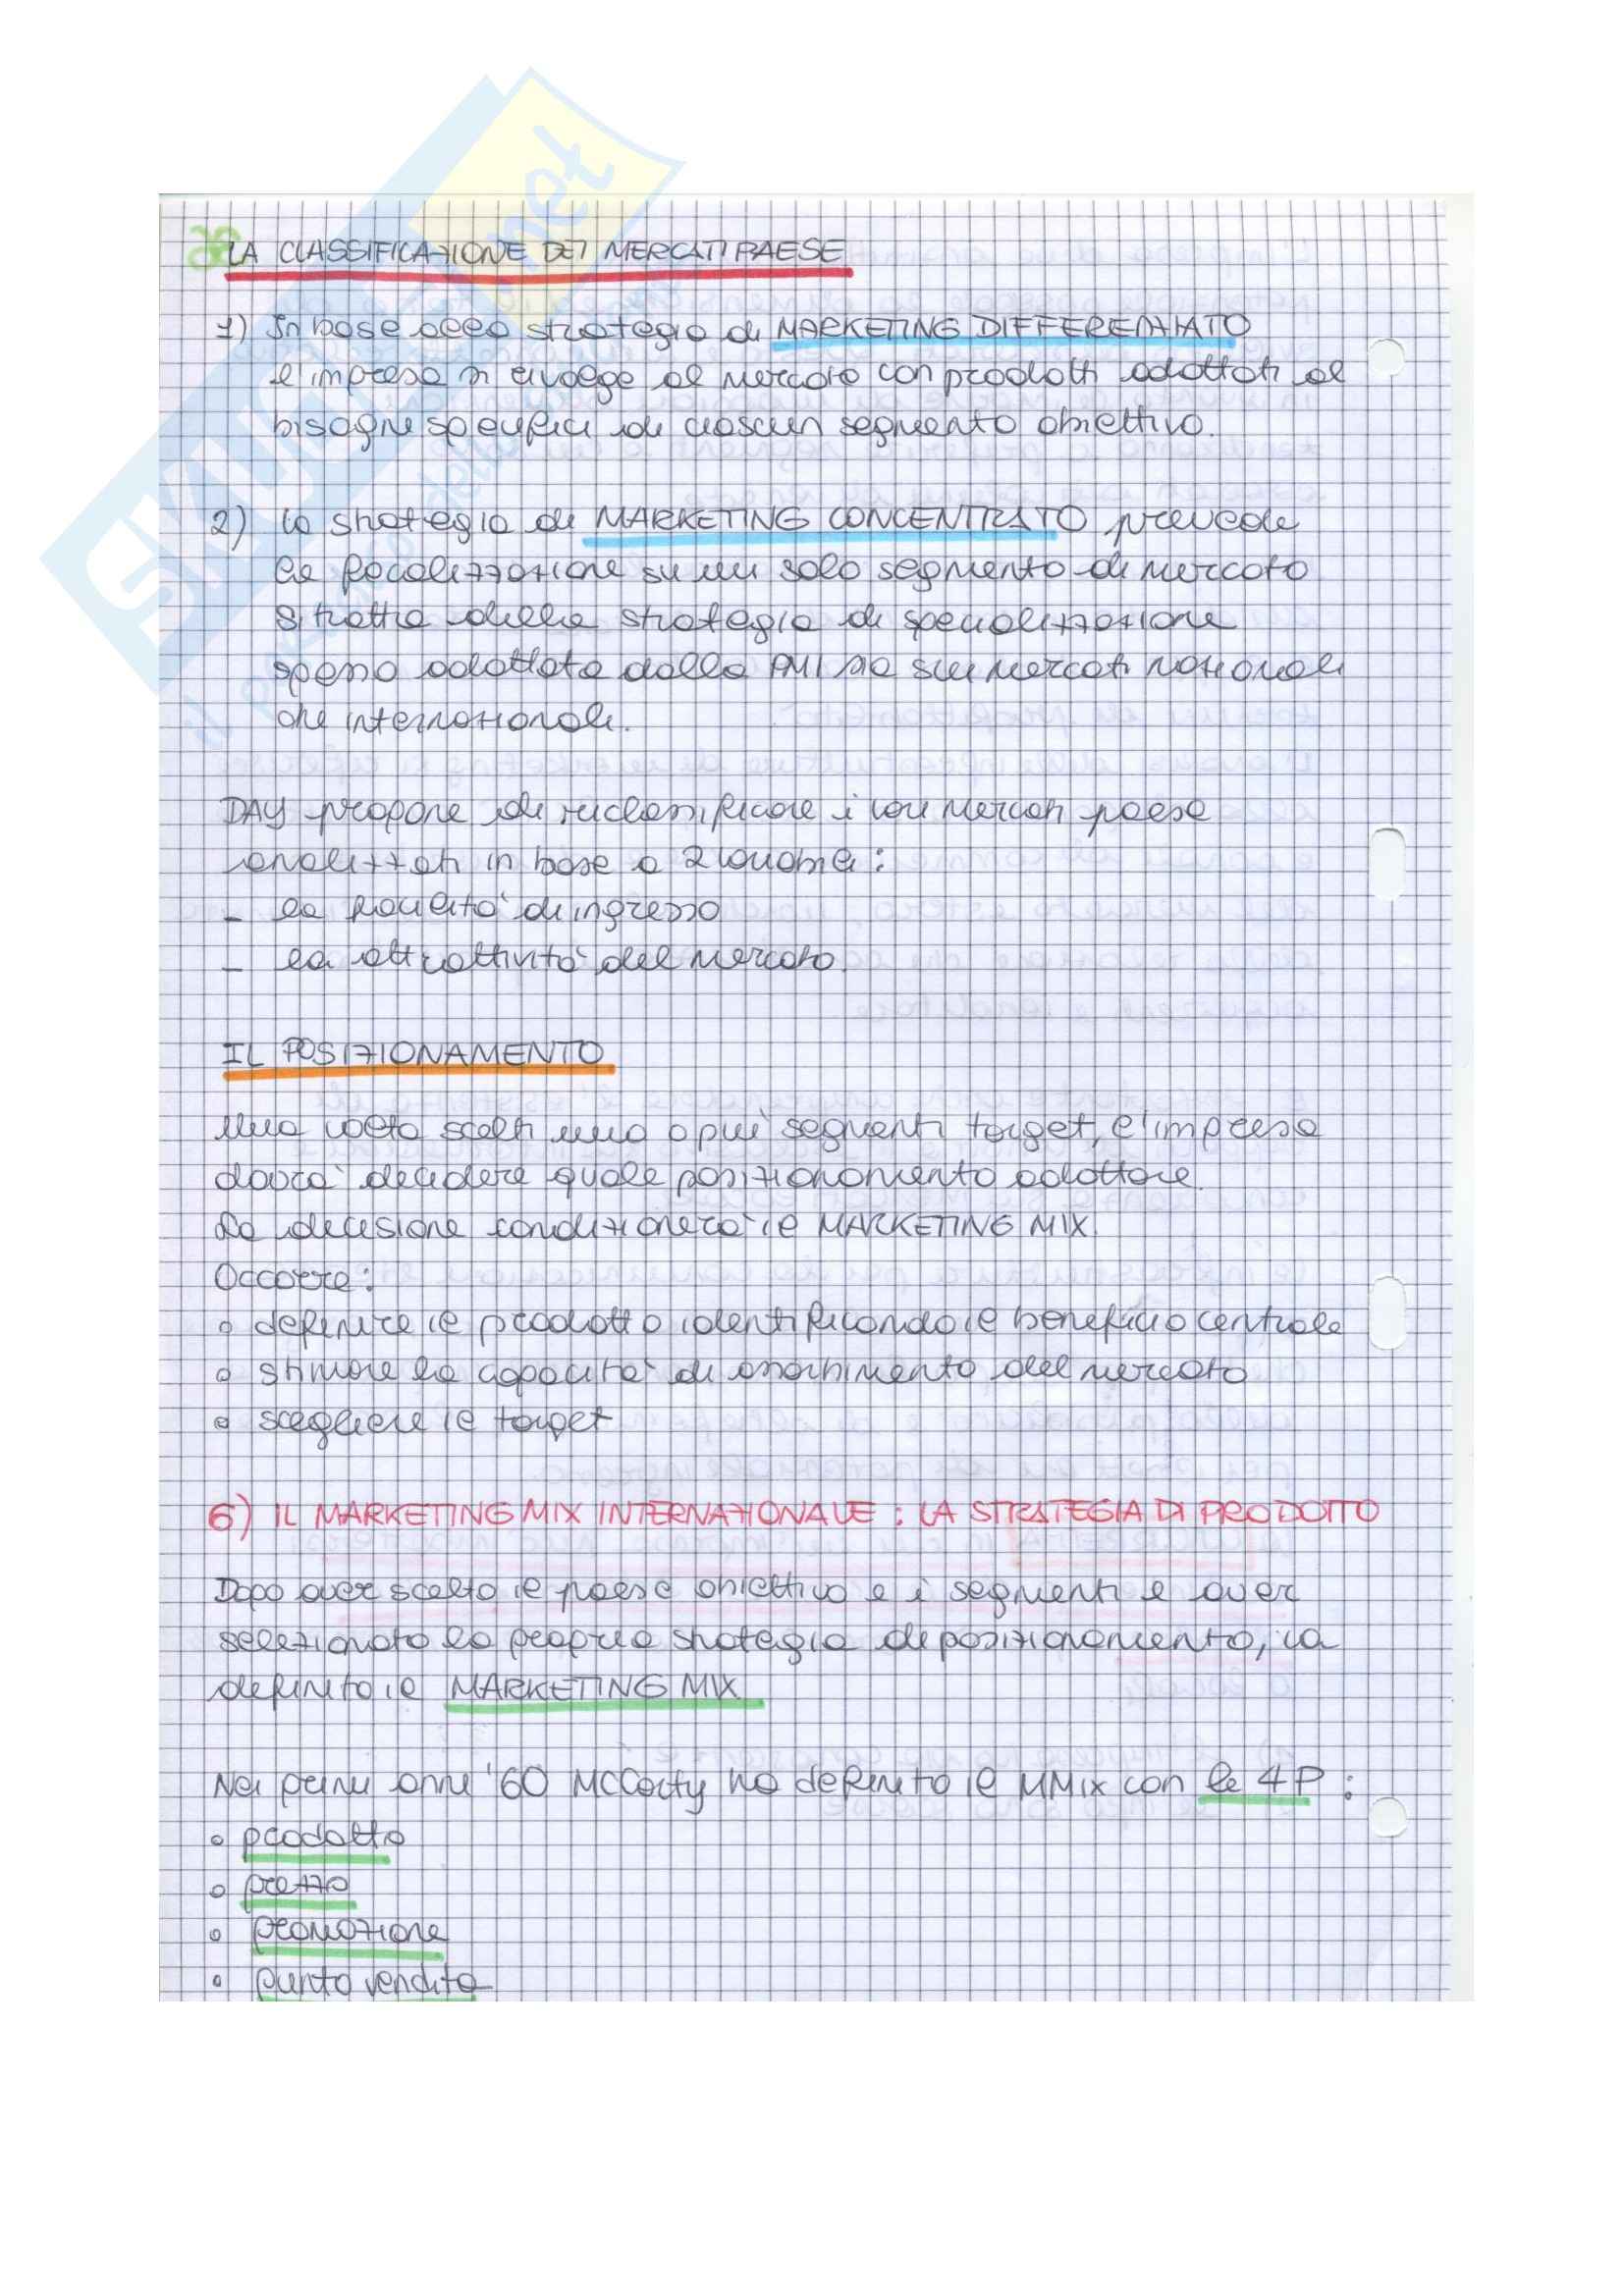 LA CLASSIFICAZIONE DEI MERCATI PAESE
1) In base alla strategia di MARKETING DIFFERENZIATO
l'impresa si rivolge al mercato con prodotti adattati ai
bisogni specifici di ciascun segmento obiettivo.
2) la strategia di MARKETING CONCENTRATO prevede
la focalizzazione su un solo segmento di mercato
si tratta della strategia di specializzazione
spesso adottata dalla PMI sia sui mercati nazionali
che internazionali.
DAY propone di riclassificare i vari mercati paese
analizzati in base a 2 variabili:
- la facilità di ingresso
- la attrattività del mercato.
IL POSIZIONAMENTO
Una volta scelti uno o più segmenti target, l'impresa
dovrà decidere quale posizionamento adottare.
La decisione condizionerà il MARKETING MIX.
Occorre:
° definire il prodotto identificando il beneficio centrale
° stimare la capacità di assorbimento del mercato
° scegliere il target
6) IL MARKETING MIX INTERNAZIONALE : LA STRATEGIA DI PRODOTTO
Dopo aver scelto il paese obiettivo e i segmenti e aver
selezionato la propria strategia di posizionamento, va
definito il MARKETING MIX
Nei primi anni '60 McCarty ha definito il MMix con le 4P :
° prodotto
° prezzo
° promozione
° punto vendita
SKUOLA.net
il paradiso dello